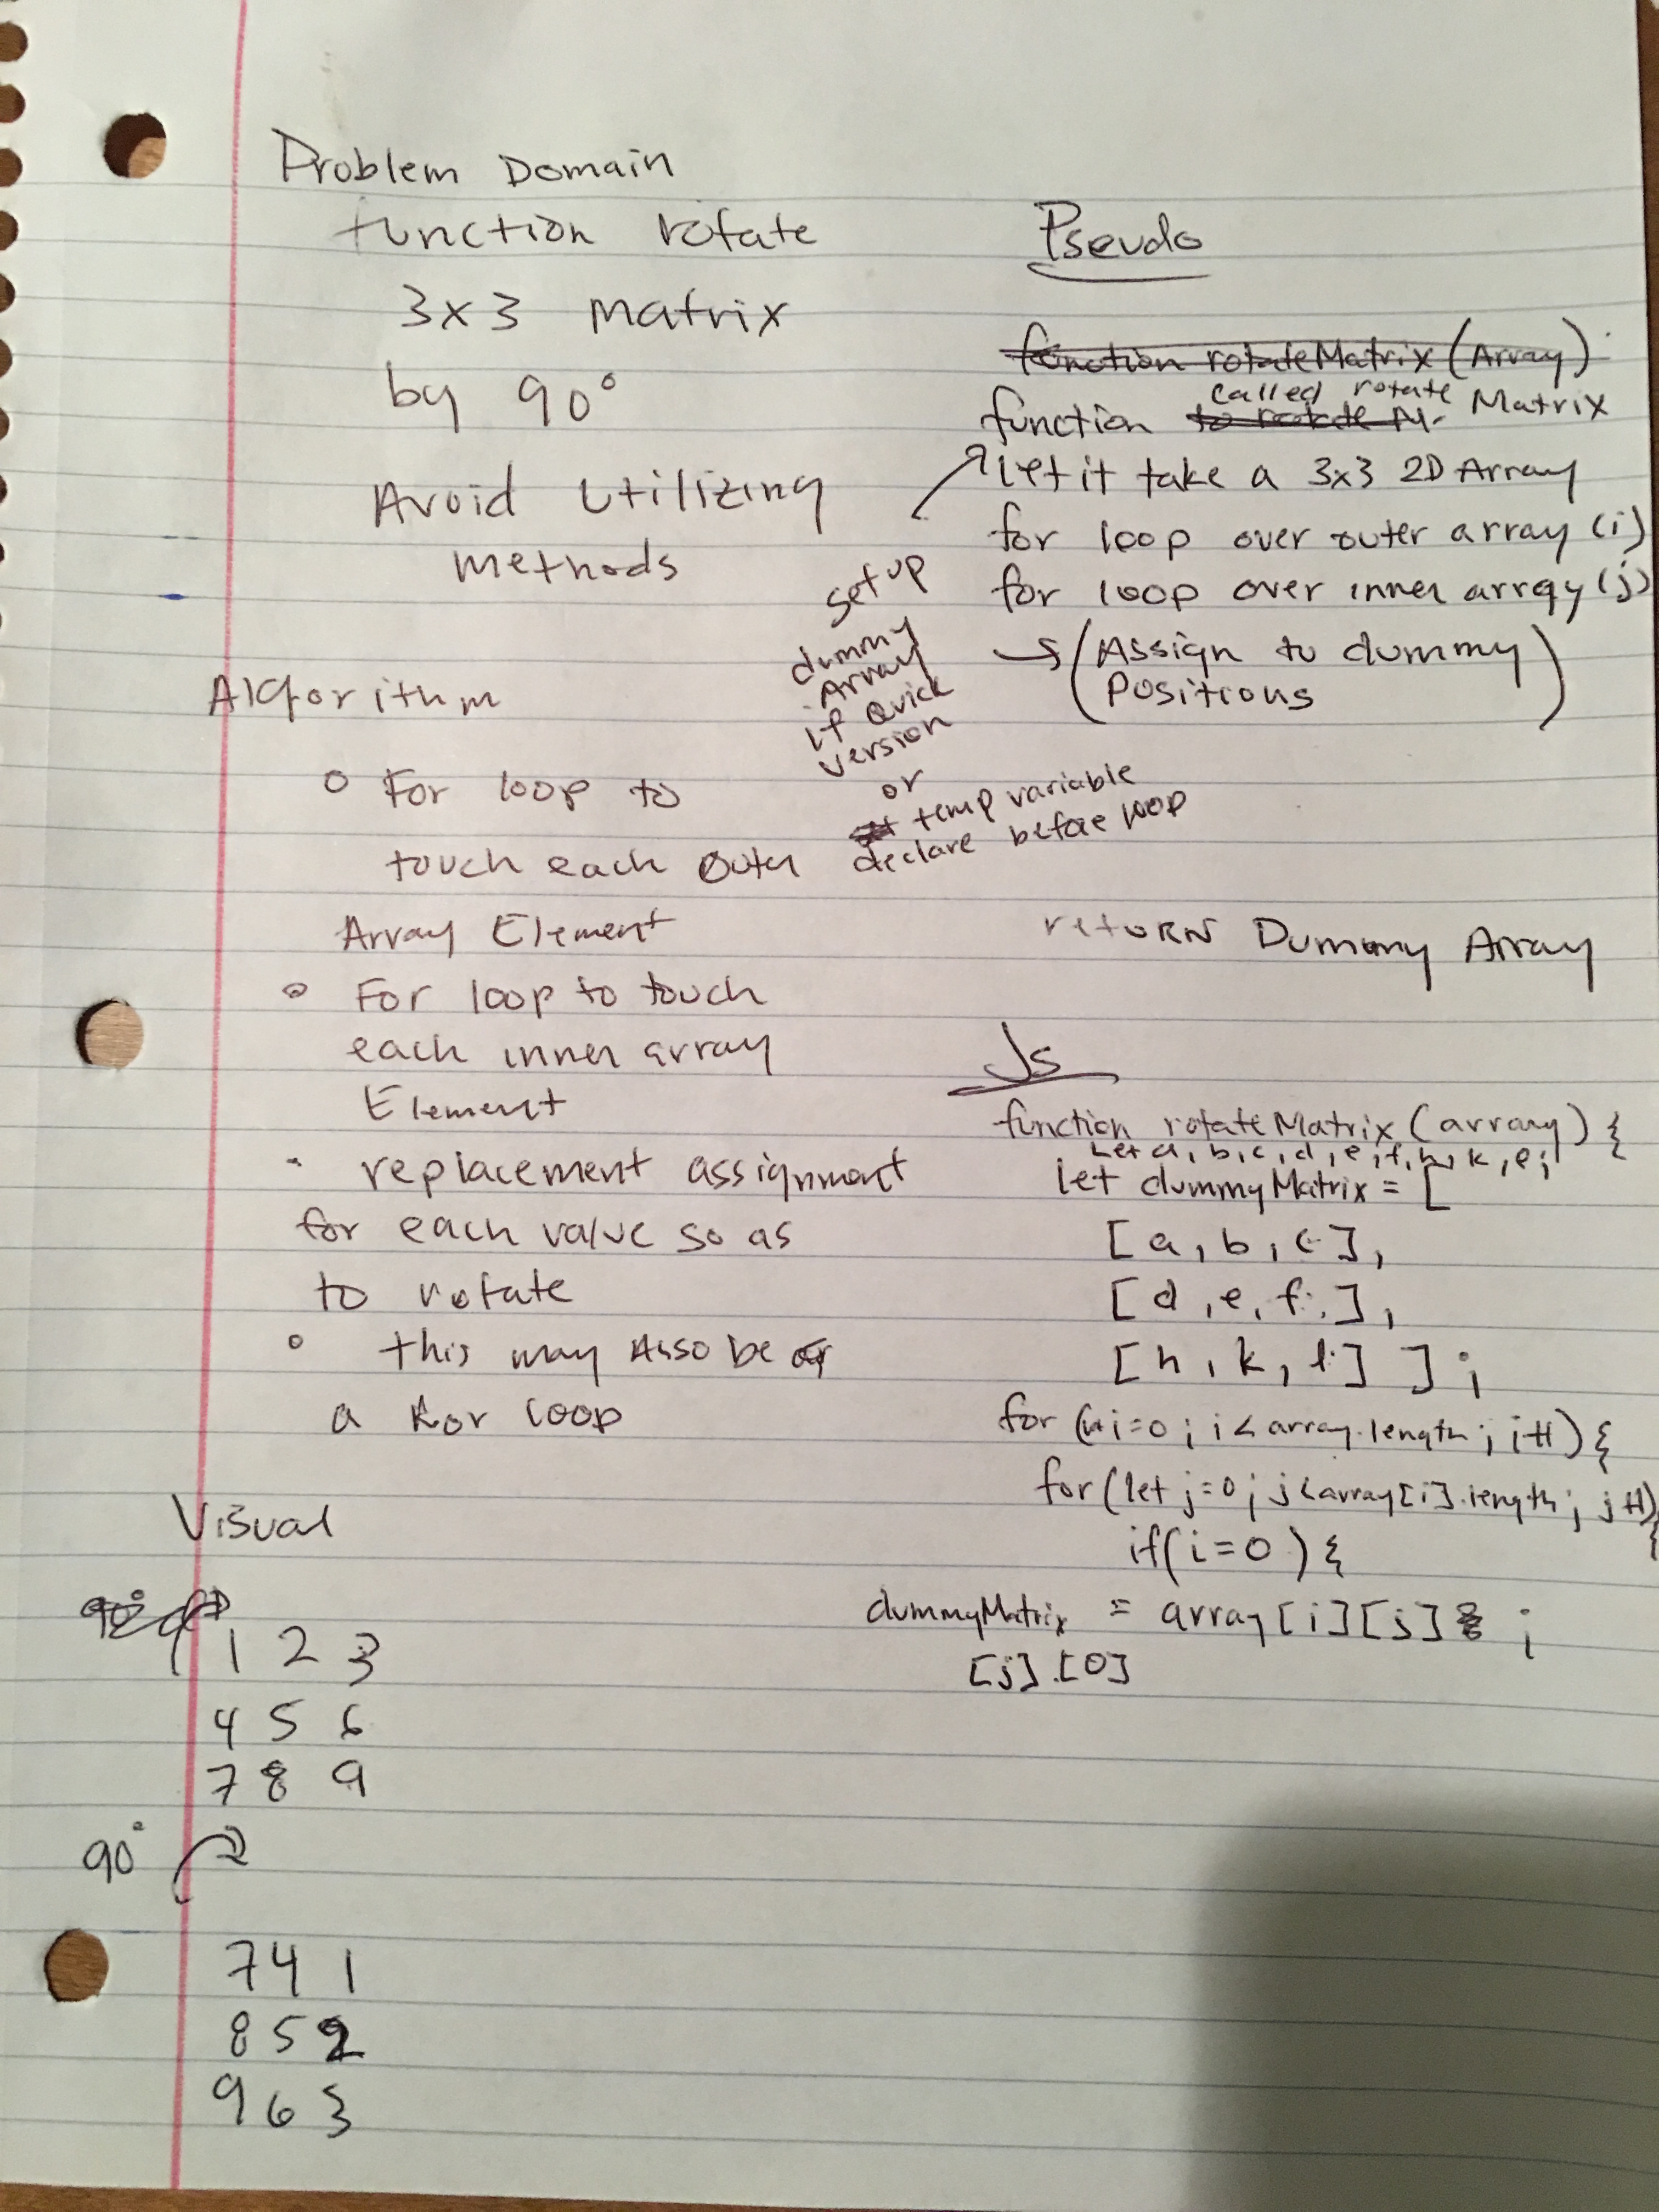 Problem Domain
function rotate
3x3 Matrix
by 90°
Avoid Utilizing
methods
Algorithm
o For loop to
touch each outer
Array Element
o For loop to touch
each inner array
Element
- replacement assignment
for each value so as
to rotate
o this may Also be
a for loop
Visual
90°
1 2 3
4 5 6
7 8 9
90°
7 4 1
8 5 2
9 6 3
Pseudo
function rotateMatrix (Array)
called rotate
function to rotate M. Matrix
let it take a 3x3 2D Array
for loop over outer array (i)
for loop over inner array (j)
→ (Assign to dummy
Positions)
set up
dummy
Array
if Quick
version
or
temp variable
declare before loop
retuRN Dummy Array
Js
function rotateMatrix (array) {
Let a, b, c, d, e, f, h, k, l;
let dummyMatrix = [
[a, b, c],
[d, e, f],
[h, k, l] ];
for (let i=0; i < array.length; i++) {
for (let j=0; j < array[i].length; j++) {
if(i=0) {
dummyMatrix = array[i][j] ;
[j].[0]